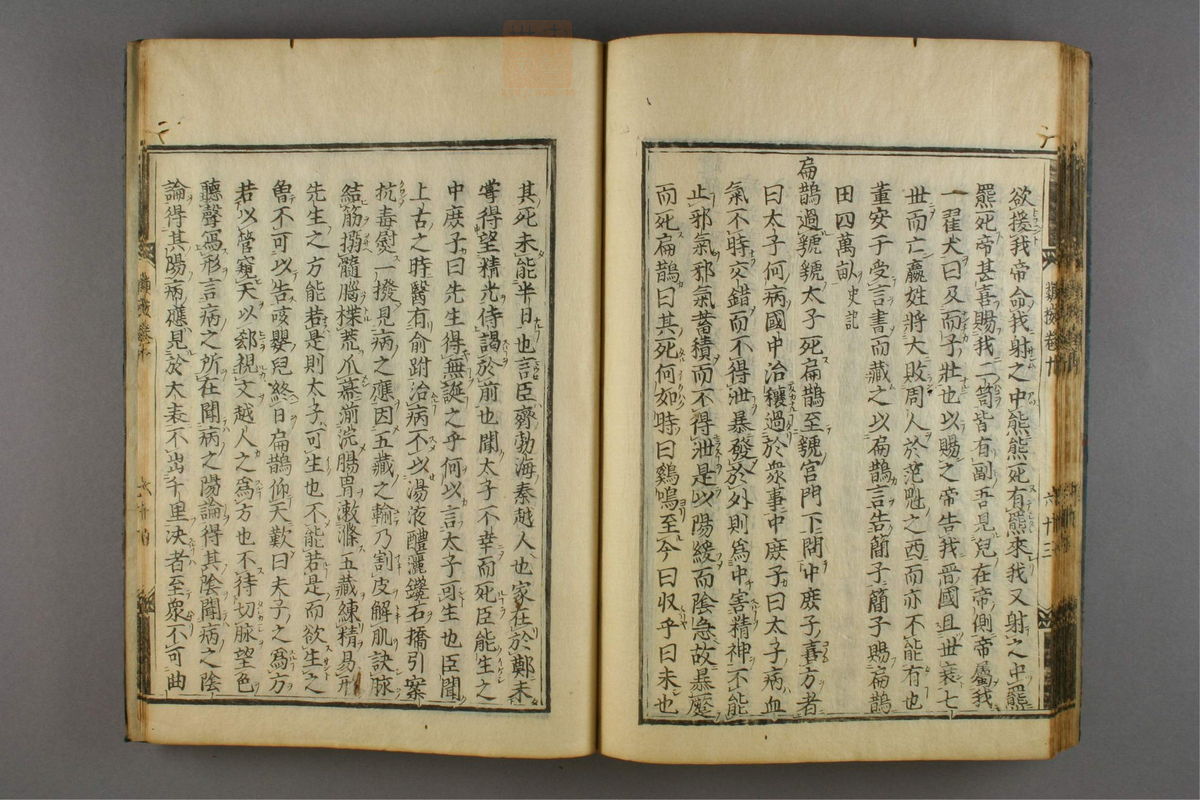 欲援我帝命我射之中熊熊死有羆來我又射之中羆
羆死帝甚喜賜我二笥皆有副吾見兒在帝側帝屬我
一翟犬曰及而子壯也以賜之帝告我晋國且世衰七
世而亡嬴姓將大敗周人於范魁之西而亦不能有也
董安于受言書而藏之以扁鵲言告簡子簡子賜扁鵲
田四萬畝 史記
扁鵲過虢虢太子死扁鵲至虢宮門下問中庶子喜方者
曰太子何病國中治穰過於衆事中庶子曰太子病血
氣不時交錯而不得泄暴發於外則爲中害精神不能
止邪氣邪氣蓄積而不得泄是以陽緩而陰急故暴蹷
而死扁鵲曰其死何如時曰鷄鳴至今曰収乎曰未也
六十三
其死未能半日也言臣齊勃海秦越人也家在於鄭未
甞得望精光侍謁於前也聞太子不幸而死臣能生之
中庶子曰先生得無誕之乎何以言太子可生也臣聞
上古之時醫有俞跗治病不以湯液醴灑鑱石撟引案
抗毒熨一撥見病之應因五藏之輸乃割皮解肌訣脉
結筋搦髓腦揲荒爪幕湔浣腸胃漱滌五藏練精易形
先生之方能若是則太子可生也不能若是而欲生之
曾不可以告咳嬰兒終日扁鵲仰天歎曰夫子之爲方
若以管窺天以郄視文越人之爲方也不待切脉望色
聽聲寫形言病之所在聞病之陽論得其陰聞病之陰
論得其陽病應見於大表不出千里决者至衆不可曲